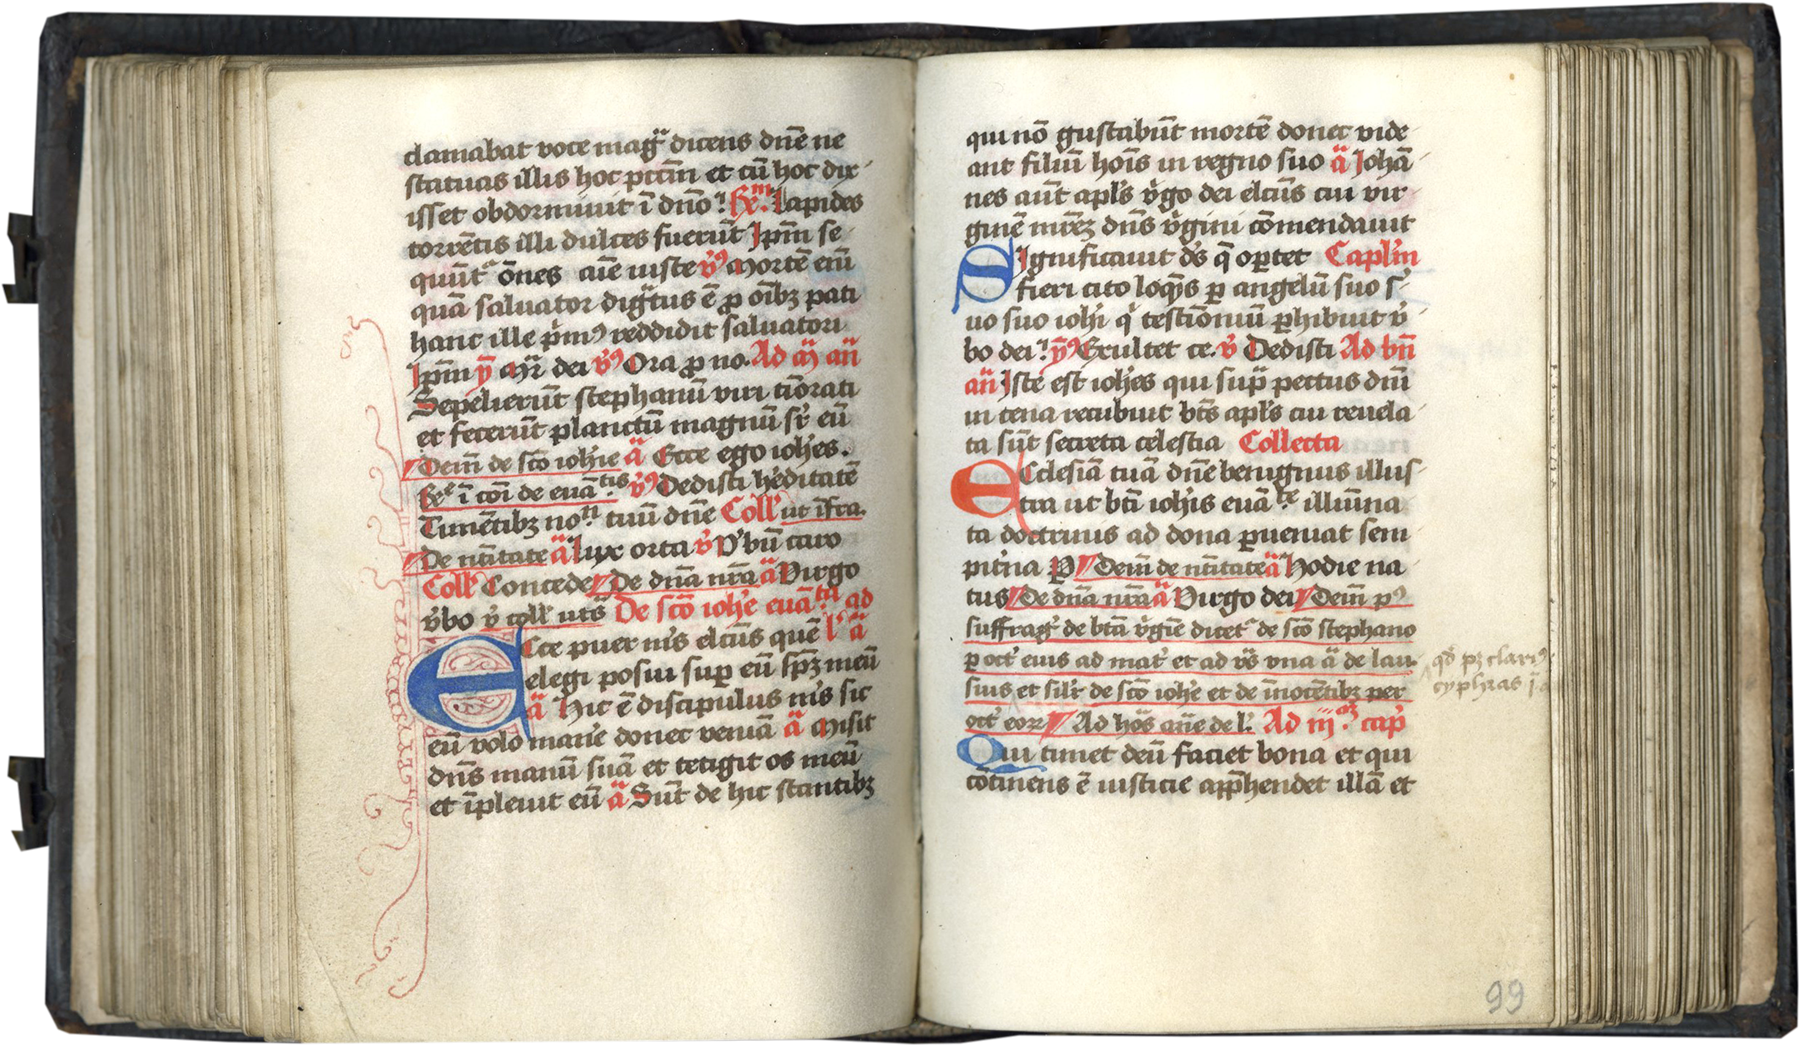 clamabat voce mag̃ dicens dn̄e ne
statuas illis hoc pctm̄ et cū hoc dix
isset obdormiuit ī dn̄o Lapides
torrētis illi dulces fuerūt Ipm̄ se
quūt ōnes aīe iuste v̉ Mortē enī
quā saluator dig̃tus ē ꝓ oībꝫ pati
hanc ille p̄m reddidit saluatori
Ipm̄ ỹ Mr̄ dei v̉ Ora ꝓ no. Ad m̄ an̄
Sepelierūt stephanū viri tiōrati
et fecerūt planctū magnū sr̄ eū
Deīn de sc̄o ioh̓ie ā Ecce ego ioh̓es.
ī cōi de euā^tis v̉ Dedisti h̓editatē
Timētibꝫ no tuū dn̄e Coll̓ ut īfra.
De nt̄itate ā Lux orta v̉ V̓bū caro
Coll̓ Concede De dn̄a nr̄a ā Virgo
v̓bo v̉ coll̓ ut s̄ De sc̄o ioh̓e euā^ta ad
Ecce puer m̓s elcūs quē l̓ ā
elegi posui suꝑ eū sp̄ꝫ meū
ā Hic ē discipulus m̓s sic
eū volo man̓e donec veniā ā Misit
dn̄s manū suā et tetigit os meū
et īpleuit eū ā Sūt de hic stantibꝫ
qui nō gustabūt mortē donec vide
ant filiū hoīs in regno suo ā Johā
nes aūt apl̓s v̓go dei elcūs cui vir
ginē mr̄eꝫ dn̄s v̓gini cōmendauit
Significauit d̓s q̄ oꝑtet Capl̓m
fieri cito loq̄ns ꝑ angelū suo s̓
uo suo ioh̓i q̓ testiōniū ꝑhibuit v̓
bo dei ỹ Exultet ce. v̉ Dedisti Ad bn̄
an̄ Iste est ioh̓es qui sup̄ pectus dn̄i
in cena recubuit bt̄s apl̓s cui reuela
ta sūt secreta celestia Collecta
Ecclesiā tuā dn̄e benignus illus
tra ut bt̄i ioh̓is euā^te illūina
ta doctrinis ad dona ꝑueniat sem
pit̓na P̄ Deīn de nt̄itate ā Hodie na
tus De dn̄a nr̄a ā Virgo dei Deīn p̓
suffrag̓ de bt̄a v̓gīe dicet̓ de sc̄o stephano
ꝑ oct̓ eius ad mat̓ et ad v̓s vna ā de lau
suis et sil̓r de sc̄o ioh̓e et de īnocētibꝫ per
oct̓ eoꝝ Ad ho̓s aūe de l̓. Ad iij cap̓
Qui timet deū faciet bona et qui
cōtinens ē iusticie app̄hendet illā et
99